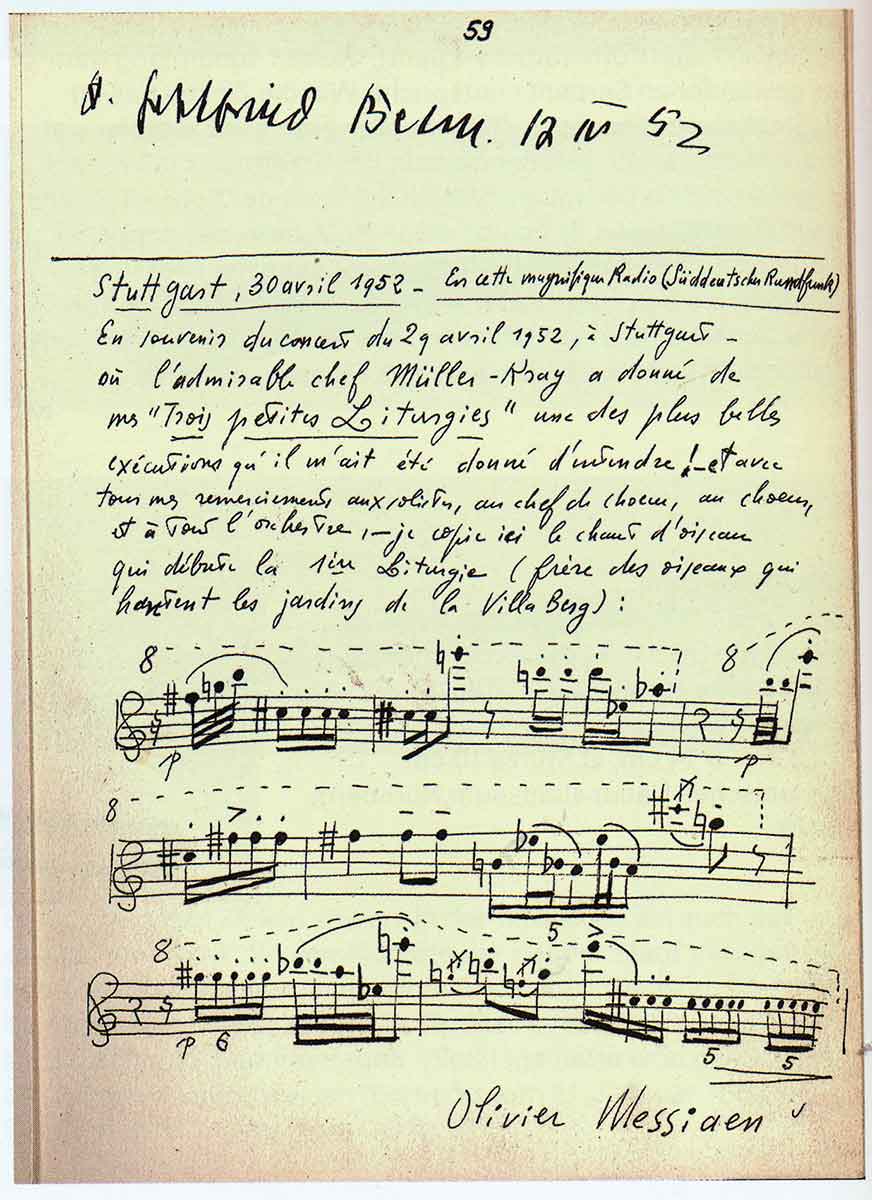 59
Gottfried Benn. 12 IV 52
Stuttgart, 30 avril 1952 - En cette magnifique Radio (Süddeutscher Rundfunk)
En souvenir du concert du 29 avril 1952, à Stuttgart -
où l'admirable chef Müller-Kray a donné de
mes "Trois petites Liturgies" une des plus belles
exécutions qu'il m'ait été donné d'entendre ! - et avec
tous mes remerciements aux solistes, au chef de choeur, au choeur,
et à tout l'orchestre, - je copie ici le chant d'oiseau
qui débute la 1ère Liturgie (frère des oiseaux qui
hantent les jardins de la Villa Berg) :
8 8
p p
8
5
8
p 6 5 5
Olivier Messiaen